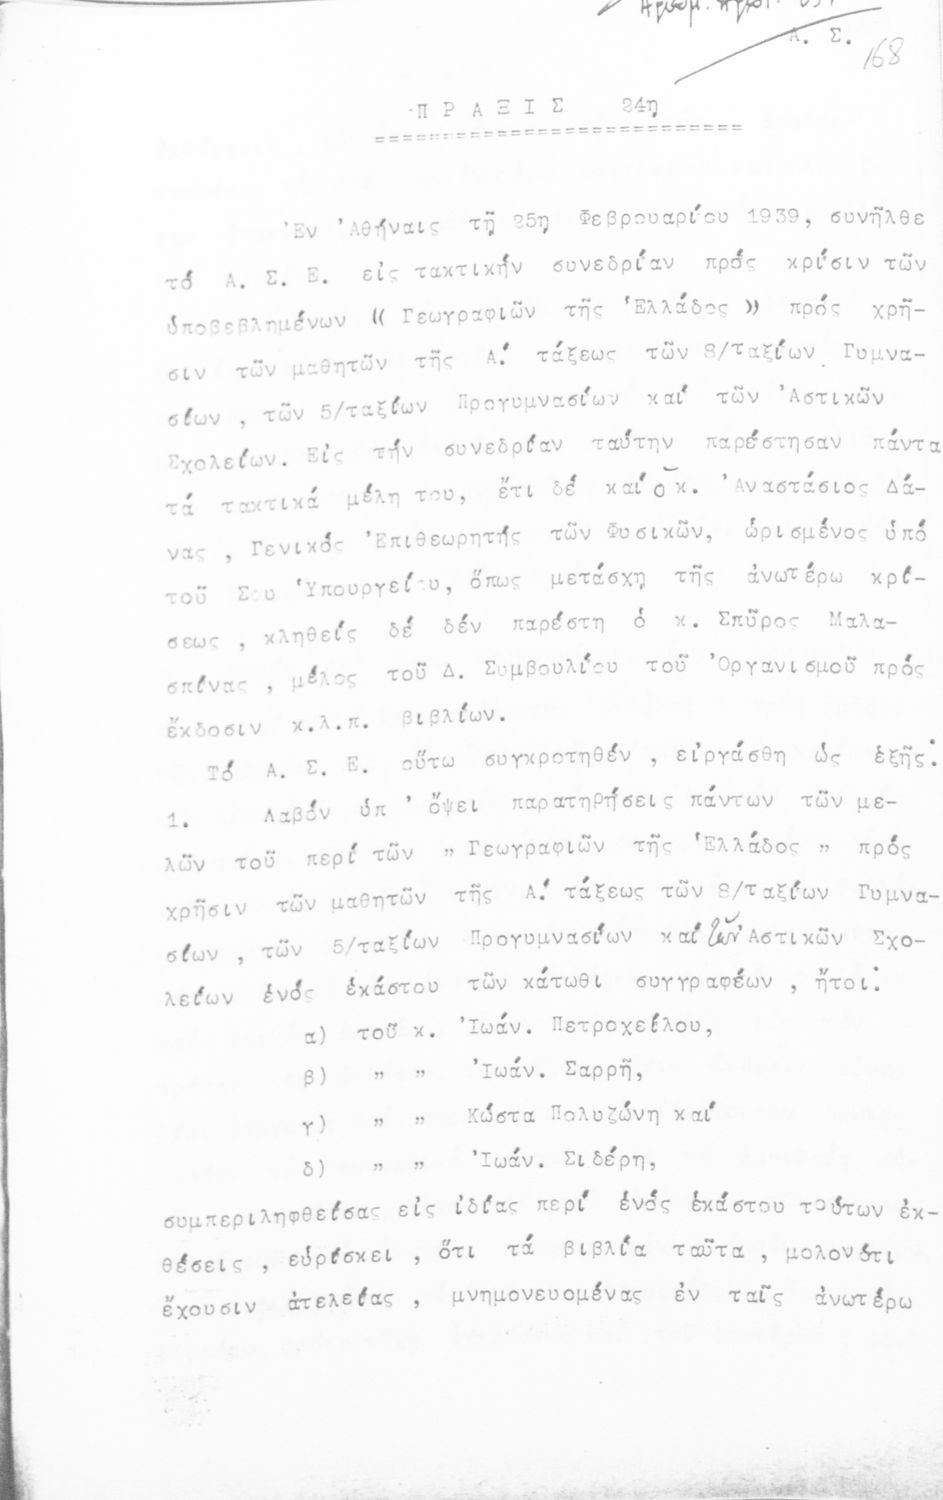 Α. Σ.
168
ΠΡΑΞΙΣ 24η
Ἐν Ἀθήναις τῇ 25ῃ Φεβρουαρίου 1939, συνῆλθε
τό Α. Σ. Ε. εἰς τακτικήν συνεδρίαν πρός κρίσιν τῶν
ὑποβεβλημένων (( Γεωγραφιῶν τῆς Ἑλλάδος )) πρός χρῆ-
σιν τῶν μαθητῶν τῆς Α.' τάξεως τῶν 8/ταξίων Γυμνα-
σίων , τῶν 5/ταξίων Προγυμνασίων καί τῶν Ἀστικῶν
Σχολείων. Εἰς τήν συνεδρίαν ταύτην παρέστησαν πάντα
τά τακτικά μέλη του, ἔτι δέ καί ὁ κ. Ἀναστάσιος Δά-
νας , Γενικός Ἐπιθεωρητής τῶν Φυσικῶν, ὡρισμένος ὑπό
τοῦ Σου Ὑπουργείου, ὅπως μετάσχῃ τῆς ἀνωτέρω κρί-
σεως , κληθείς δέ δέν παρέστη ὁ κ. Σπῦρος Μαλα-
σπίνας , μέλος τοῦ Δ. Συμβουλίου τοῦ Ὀργανισμοῦ πρός
ἔκδοσιν κ.λ.π. βιβλίων.
Τό Α. Σ. Ε. οὕτω συγκροτηθέν , εἰργάσθη ὡς ἑξῆς:
1. Λαβόν ὑπ' ὄψει παρατηρήσεις πάντων τῶν με-
λῶν τοῦ περί τῶν " Γεωγραφιῶν τῆς Ἑλλάδος " πρός
χρῆσιν τῶν μαθητῶν τῆς Α.' τάξεως τῶν 8/ταξίων Γυμνα-
σίων , τῶν 5/ταξίων Προγυμνασίων καί τῶν Ἀστικῶν Σχο-
λείων ἑνός ἑκάστου τῶν κάτωθι συγγραφέων , ἤτοι:
α) τοῦ κ. Ἰωάν. Πετροχείλου,
β) " " Ἰωάν. Σαρρῆ,
γ) " " Κώστα Πολυζώνη καί
δ) " " Ἰωάν. Σιδέρη,
συμπεριληφθείσας εἰς ἰδίας περί ἑνός ἑκάστου τούτων ἐκ-
θέσεις , εὑρίσκει , ὅτι τά βιβλία ταῦτα , μολονότι
ἔχουσιν ἀτελείας , μνημονευομένας ἐν ταῖς ἀνωτέρω